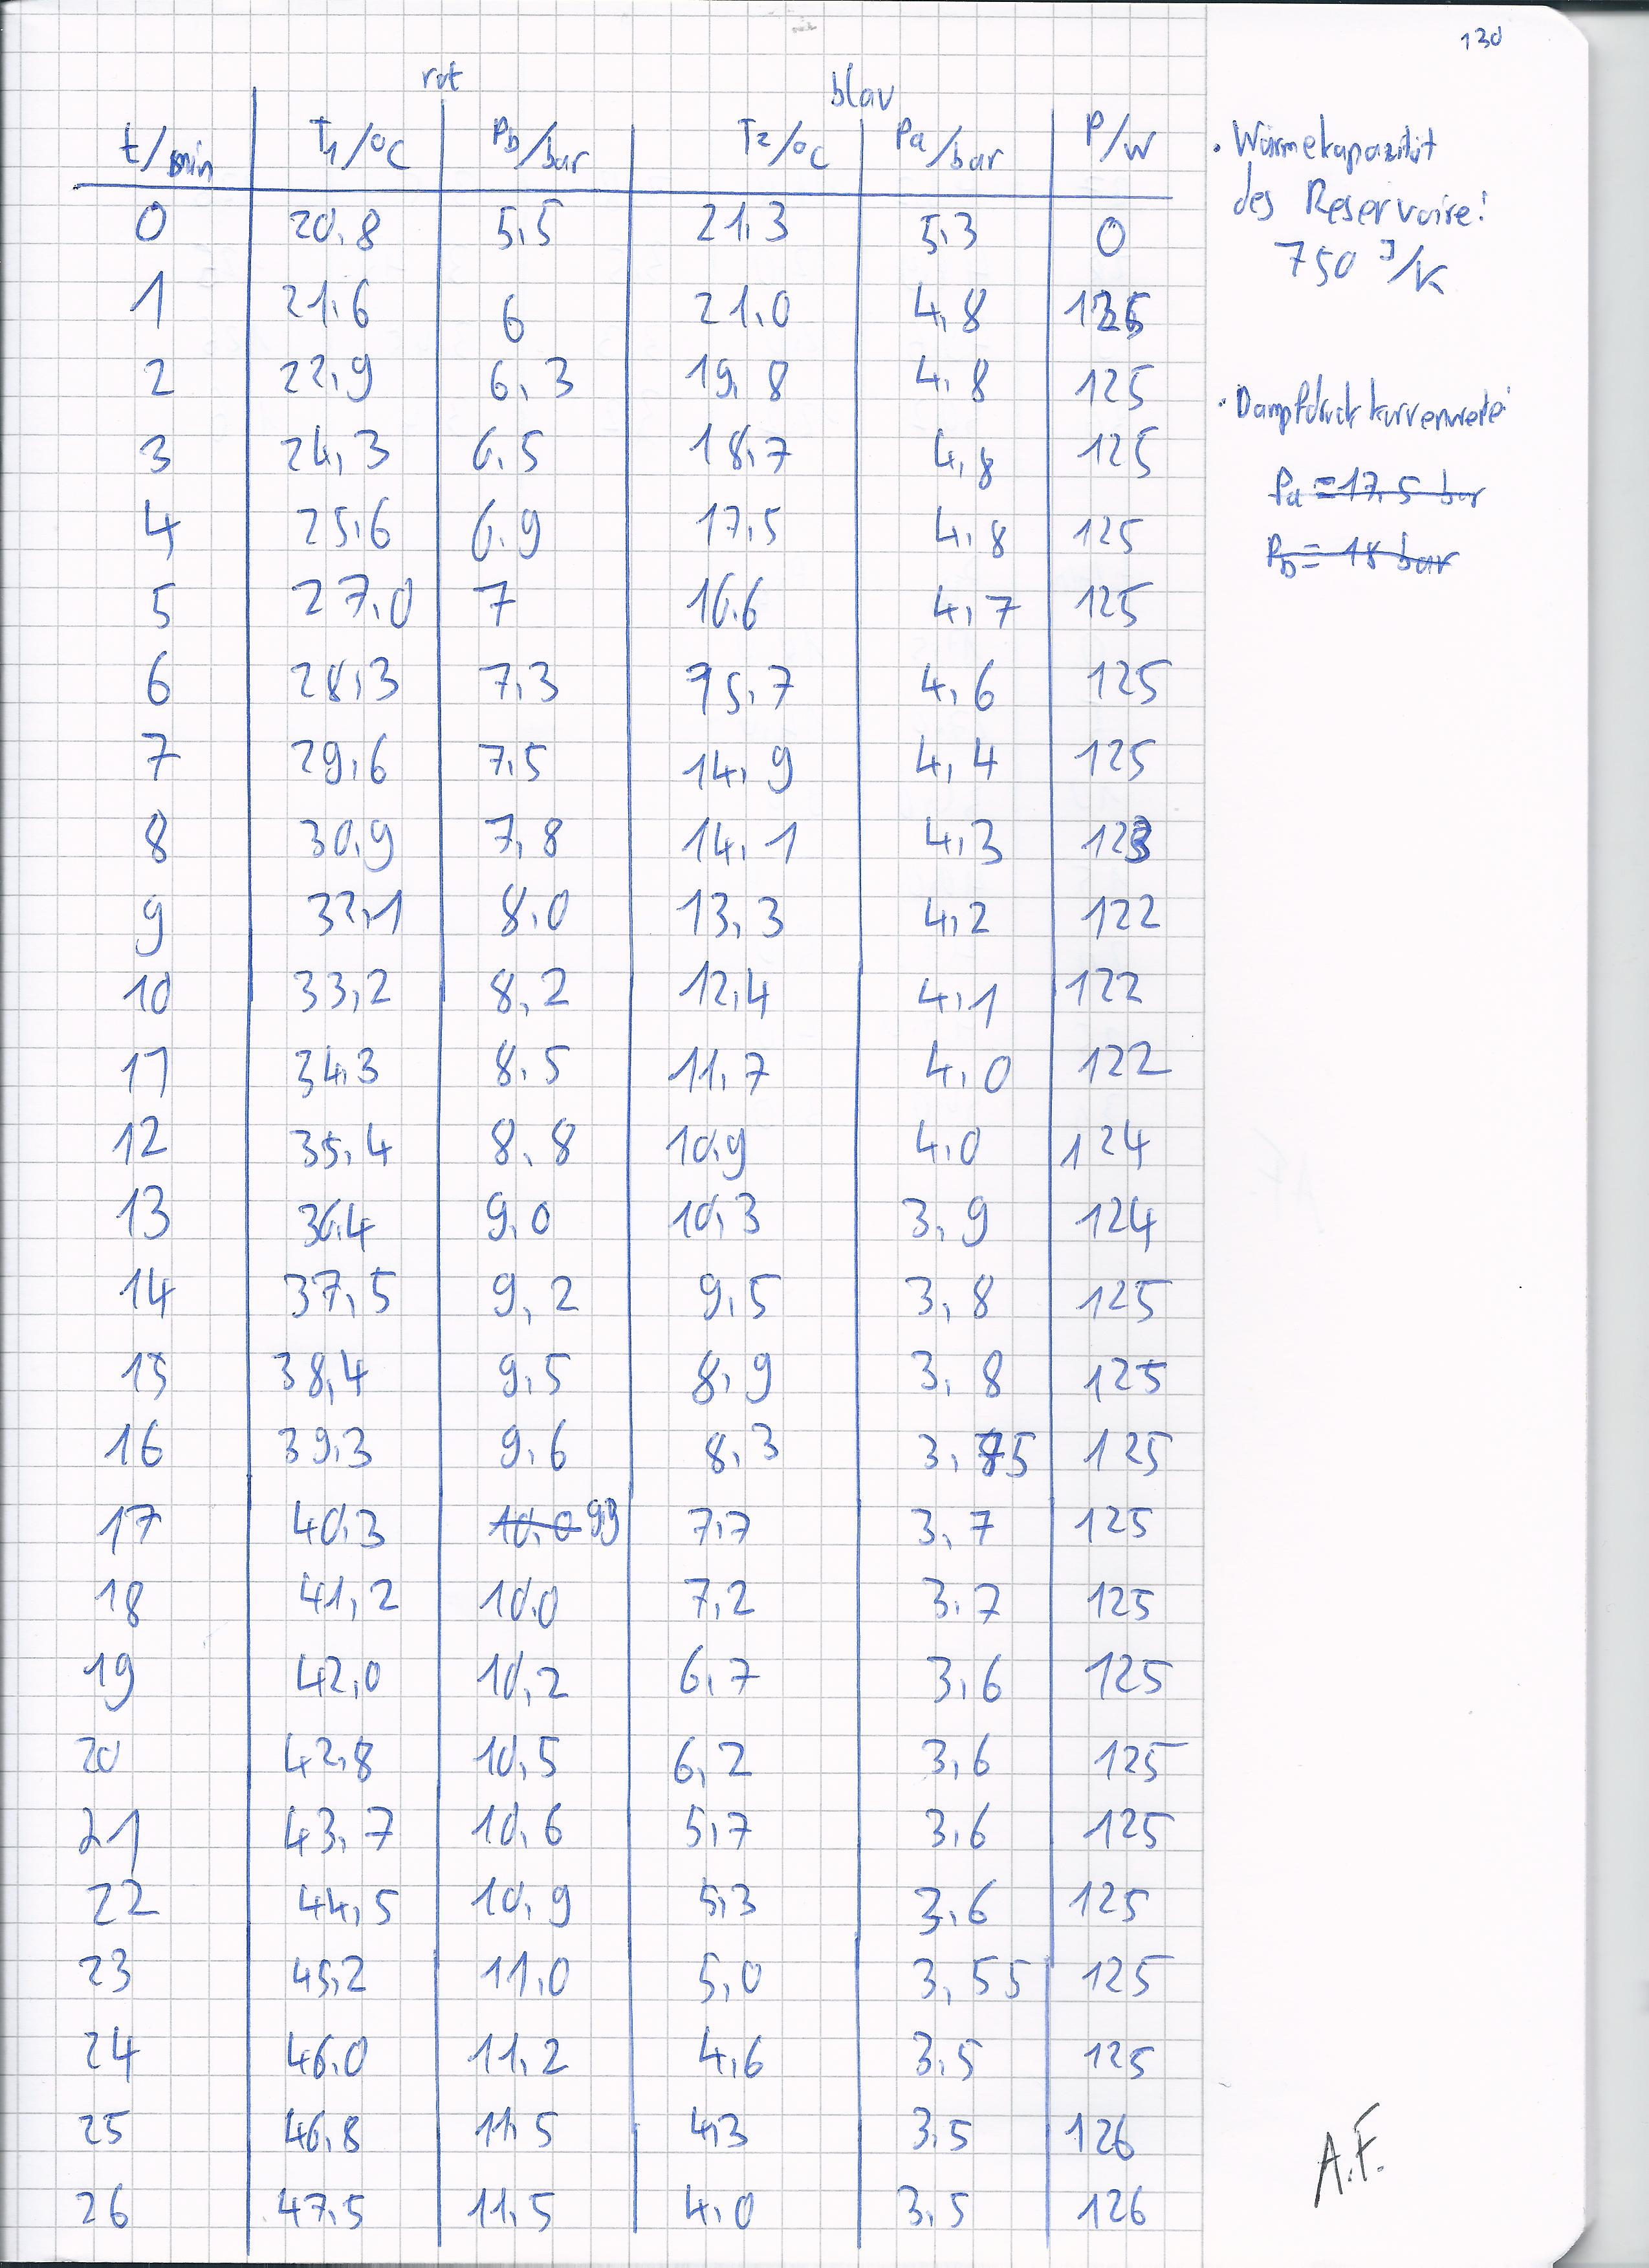 130
rot blau
t/min T1/°C Pb/bar T2/°C Pa/bar P/W
0 20,8 5,5 21,3 5,3 0
1 21,6 6 21,0 4,8
2 22,9 6,3 19,8 4,8 125
3 24,3 6,5 18,7 4,8 125
4 25,6 6,9 17,5 4,8 125
5 27,0 7 16,6 4,7 125
6 28,3 7,3 15,7 4,6 125
7 29,6 7,5 14,9 4,4 125
8 30,9 7,8 14,1 4,3 123
9 32,1 8,0 13,3 4,2 122
10 33,2 8,2 12,4 4,1 122
11 34,3 8,5 11,7 4,0 122
12 35,4 8,8 10,9 4,0 124
13 36,4 9,0 10,3 3,9 124
14 37,5 9,2 9,5 3,8 125
15 38,4 9,5 8,9 3,8 125
16 39,3 9,6 8,3 3,75 125
17 40,3 10,0 9,9 7,7 3,7 125
18 41,2 10,0 7,2 3,7 125
19 42,0 10,2 6,7 3,6 125
20 42,8 10,5 6,2 3,6 125
21 43,7 10,6 5,7 3,6 125
22 44,5 10,9 5,3 3,6 125
23 45,2 11,0 5,0 3,55 125
24 46,0 11,2 4,6 3,5 125
25 46,8 11,5 4,3 3,5 126
26 47,5 11,5 4,0 3,5 126
• Wärmekapazität
des Reservoire:
750 J/K
• Dampfdruckkurvenwerte:
Pa = 17,5 bar
Pb = 18 bar
A.F.